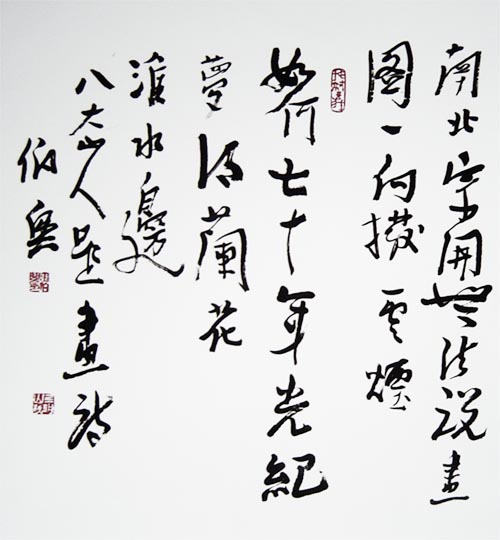 南北宗開無法說畫
圖一向撥雲煙
如何七十年光紀
夢得蘭花
水邊
八大山人題畫詩
伯